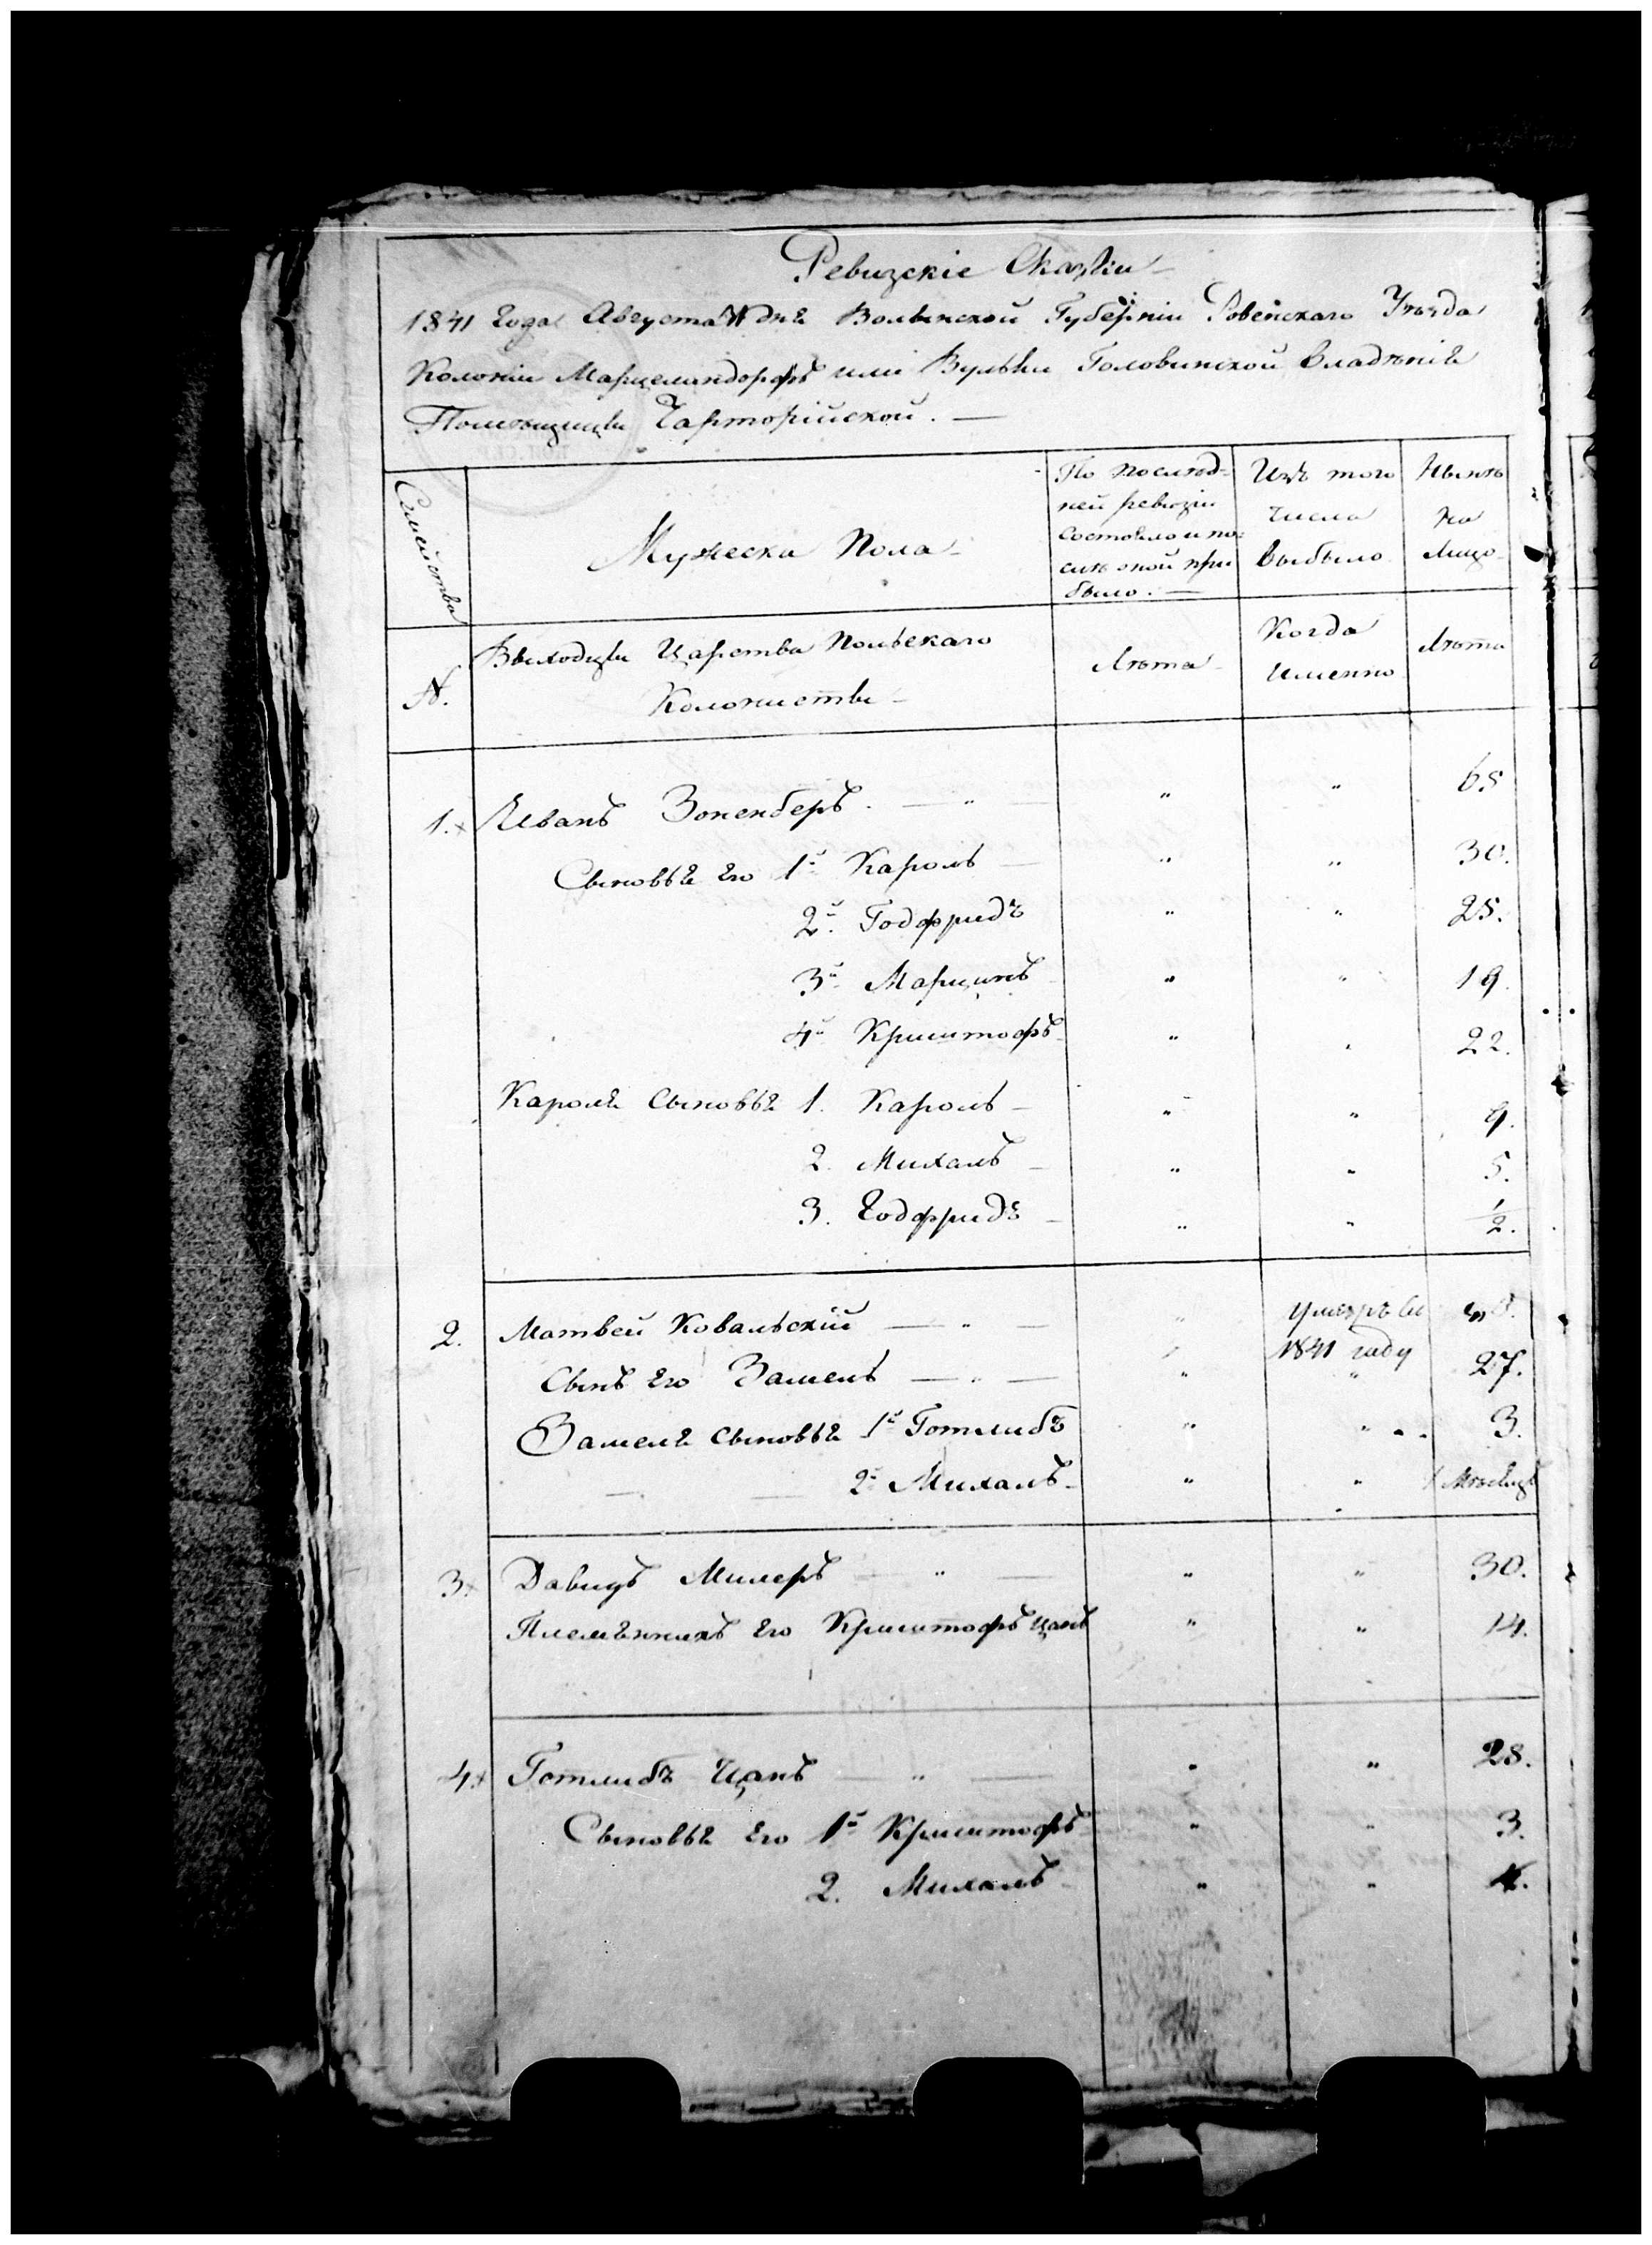 Ревизскіе Сказки
1841 года Августа дня Волынской Губерніи Ровенскаго Уѣзда
Колоніи Марцелиндорфъ или Вульки Головинской владѣнія
Помѣщицы Чарторійской. —
Семейства
Мужеска Пола
По послѣд-
ней ревизіи
состояло и по-
слѣ оной при
было. —
Изъ того
числа
выбыло
Нынѣ
на
Лицо
№.
Выходцы Царства Польскаго
Колонисты
Лѣта
Когда
именно
Лѣта
1. Иванъ Зоненберъ. — " — " " 65
Сыновья его 1й Кароль — " " 30.
2й Годфридъ " " 25.
3й Марцинъ " " 19.
4й Криштофъ " " 22.
Кароля сыновья 1. Кароль — " " 9.
2. Михалъ — " " 5.
3. Годфридъ — " " 1/2.
2. Матвей Ковальскій — " — " умеръ въ
1841 году
Сынъ его Замель — " — " " 27.
Замеля сыновья 1й Готлибъ " " 3.
— — 2й Михалъ " " 1 Мѣсяцъ
3. Давидъ Милеръ — " — " " 30.
Племянникъ его Криштофъ Цанъ " " 14.
4. Готлибъ Цанъ — " — " " 28.
Сыновья его 1й Криштофъ " " 3.
2. Михалъ " "